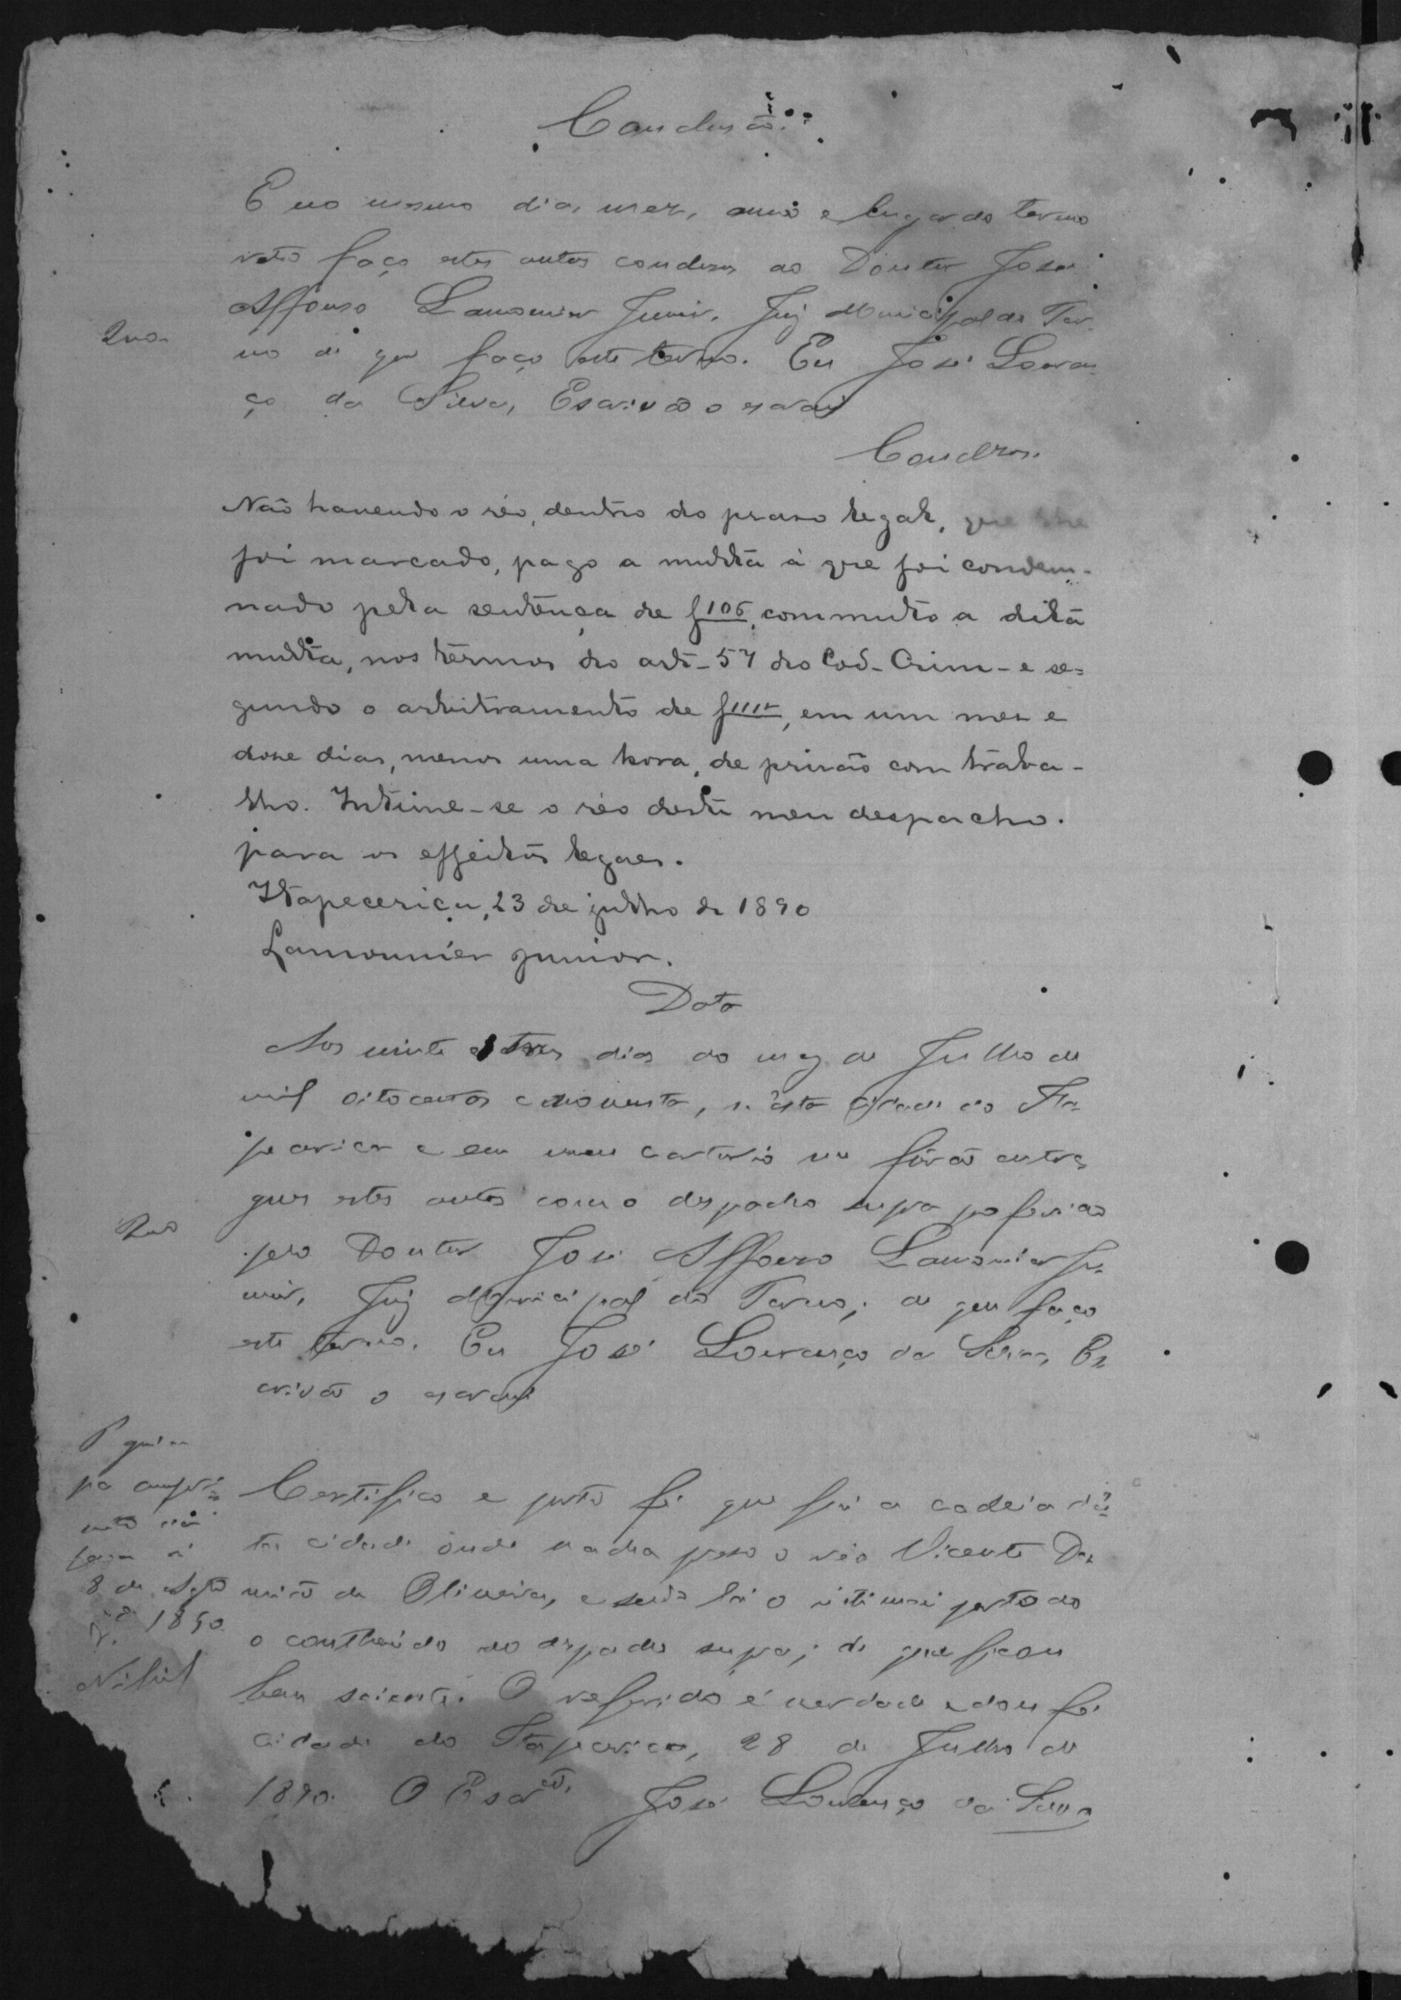 Conclusão.
E no mesmo dia, mez, anno e lugar do termo
retro faço estes autos conclusos ao Doutor José
Affonso Lamounier Junior, Juiz Municipal do Ter-
mo de que faço este termo. Eu José Louren-
ço da Silva, Escrivão o escrevi
Conclusos.
Não havendo o réo, dentro do praso legal, que lhe
foi marcado, pago a multa á que foi condem-
nado pela sentença de f 106, commuto a dita
multa, nos termos do art. 57 do Cod. Crim. e se-
gundo o arbitramento de f, em um mez e
dose dias, menos uma hora, de prisão com traba-
lho. Intime-se o réo deste meu despacho.
para os effeitos legaes.
Itapecerica, 23 de julho de 1890
Lamounier Junior.
Data
Aos vinte e tres dias do mez de Julho de
mil oitocentos e noventa, n'esta cidade do Ita-
pecerica e em meu cartorio me fôrão entre-
gues estes autos com o despacho supra proferido
pelo Doutor José Affonso Lamounier Ju-
nior, Juiz Municipal do Termo; de que faço
este termo. Eu José Lourenço da Silva, Es-
crivão o escrevi
Certifico e porto fé que fui a cadeia d'es-
ta cidade onde se acha preso o réo Vicente Da-
mião de Oliveira, e sendo lá o intimei por todo
o conthéudo do despacho supra; de que ficou
bem sciente. O referido é verdade e dou fé
cidade do Itapecerica, 28 de Julho de
1890. O Escrvão, José Lourenço da Silva
P. guia
8 de Setbro
de 1890